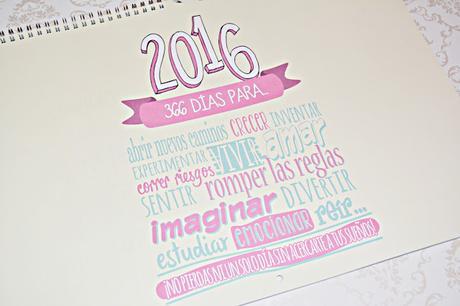 2016
366 DÍAS PARA...
abrir nuevos caminos CRECER INVENTAR
EXPERIMENTAR VIVIR amar
correr riesgos
SENTIR romper las reglas
imaginar DIVERTIR
estudiar EMOCIONAR reír...
¡NO PIERDAS NI UN SOLO DÍA SIN ACERCARTE A TUS SUEÑOS!